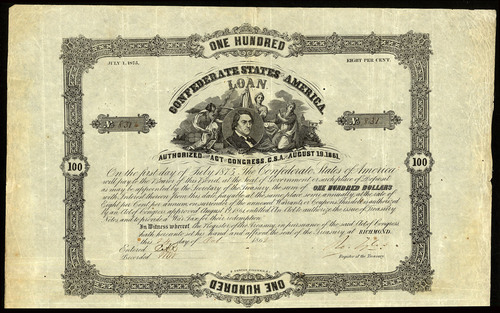 ONE HUNDRED
JULY 1, 1875. EIGHT PER CENT.
CONFEDERATE STATES OF AMERICA
LOAN
No 131
AUTHORIZED BY ACT OF CONGRESS, C.S.A. OF AUGUST 19, 1861.
100 100
On the first day of July 1875 The Confederate States of America
will pay to the Bearer of this Bond, at the seat of Government or such place of Deposit
as may be appointed by the Secretary of the Treasury, the sum of ONE HUNDRED DOLLARS
with Interest thereon from this date payable at the same place semi annually at the rate of
Eight per Cent per annum on surrender of the annexed Warrants or Coupons. This debt is authorized
by an Act of Congress approved August 19, 1861 entitled An Act to authorize the issue of Treasury
Notes and to provide a War Tax for their redemption.
In Witness whereof, the Register of the Treasury, in pursuance of the said Act of Congress
hath hereunto set his hand and affixed the seal of the Treasury at RICHMOND.
this day of 186
Entered
Recorded
Register of the Treasury.
ONE HUNDRED